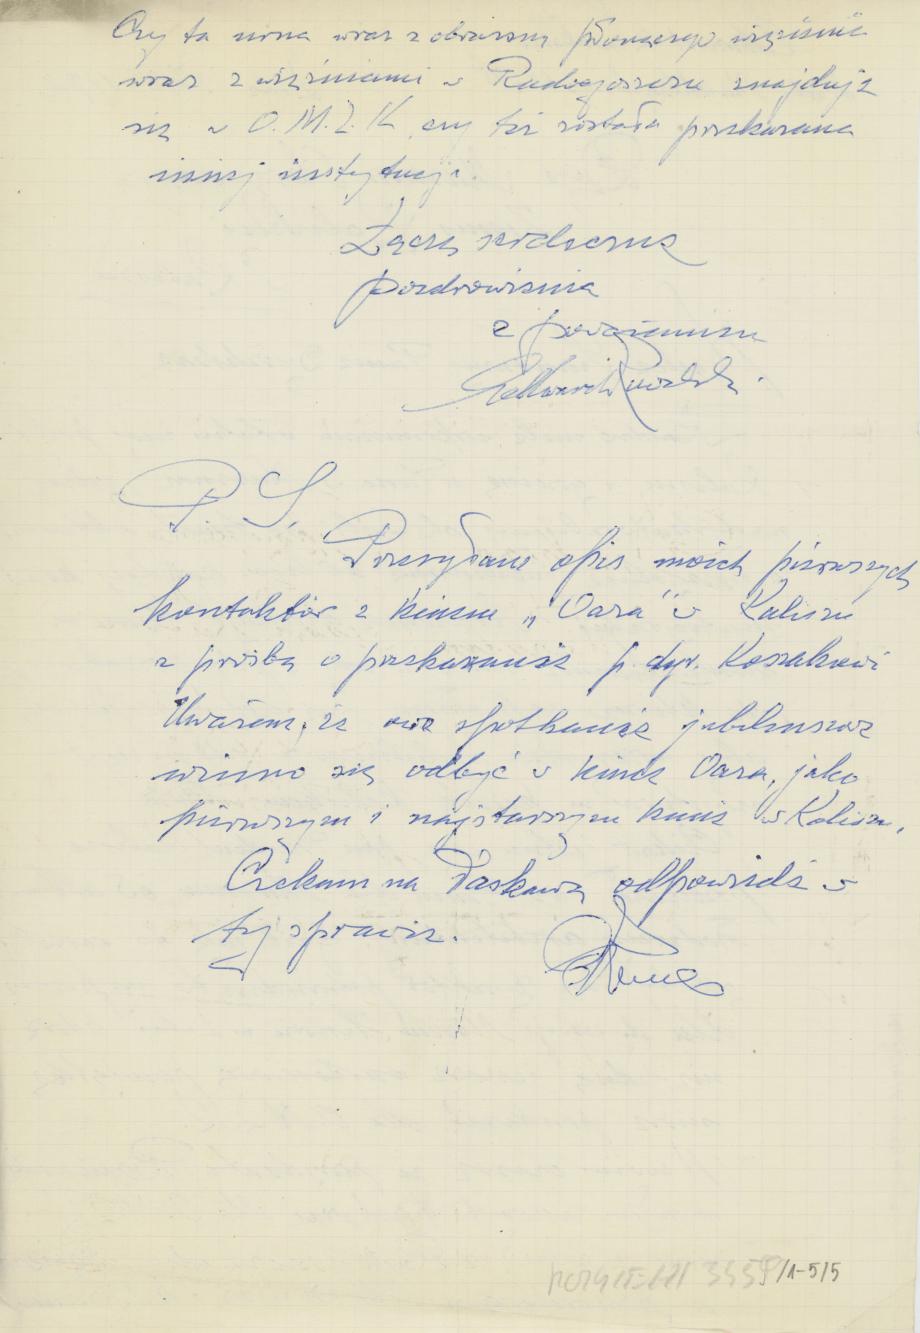 Czy ta urna wraz z obrazem płonącego więźnia
wraz z więźniami w Radogoszczu znajduje
się w O.M.Z.K czy też została przekazana
innej instytucji.
Łączę serdeczne
pozdrowienia
z poważaniem
P S.
Przesyłane opis moich pierwszych
kontaktów z kinem „Oaza" w Kaliszu
z prośbą o przekazanie p. dyr. Koszakowi
Uważam, że owe spotkanie jubileuszowe
winno się odbyć w kinie Oaza, jako
pierwszym i najstarszym kinie w Kaliszu.
Czekam na łaskawą odpowiedź w
tej sprawie.
3459/1-5/5